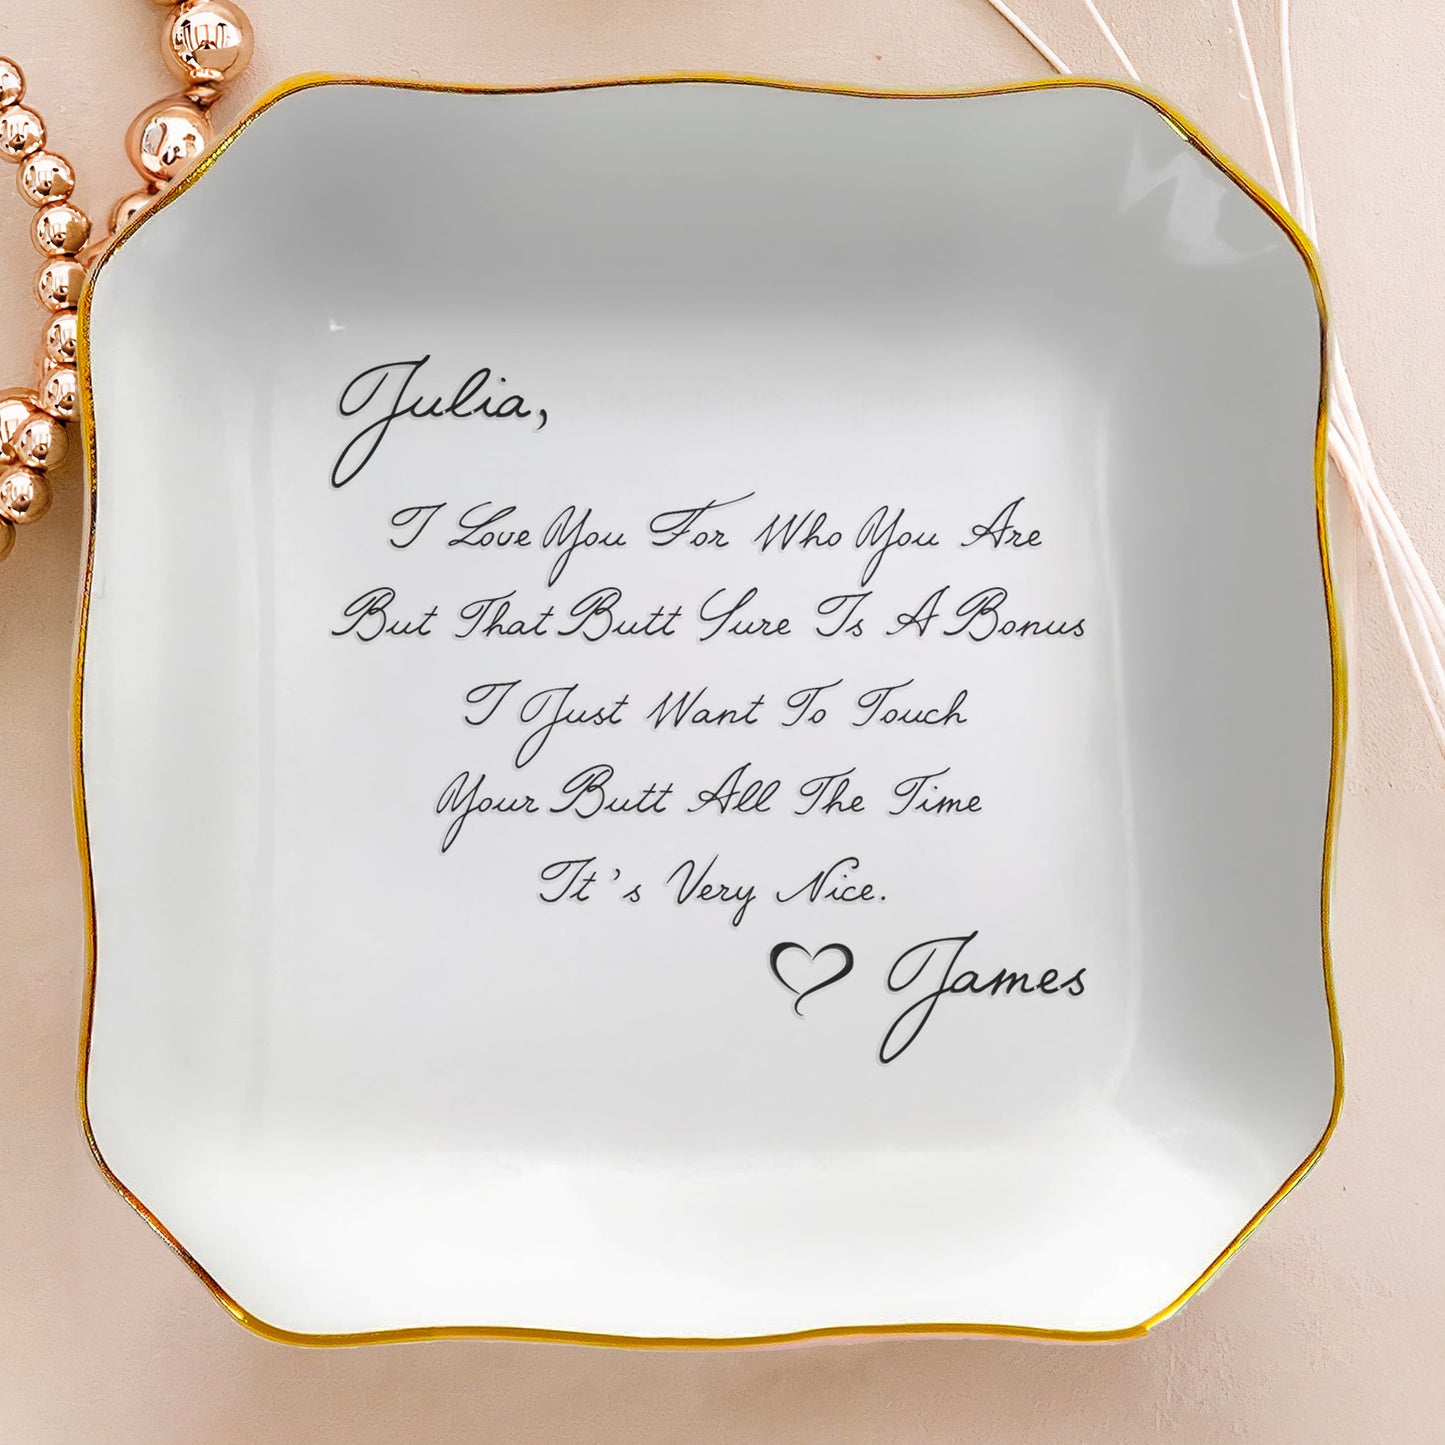 Julia,
I Love You For Who You Are
But That Butt Sure Is A Bonus
I Just Want To Touch
Your Butt All The Time
It's Very Nice.
James